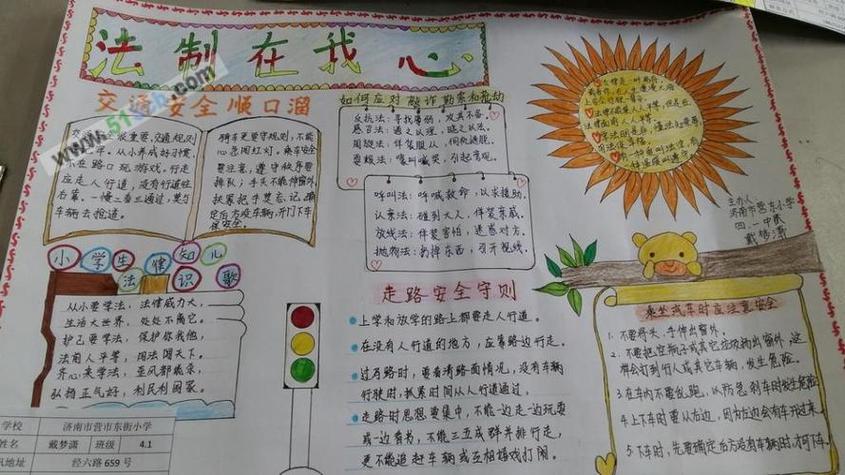 法制在我心
www.51scb.com
交通安全顺口溜
骑车更要守规则,不能
闯红灯,乘车安全
要注意,遵守秩序要
排队;手头不能伸窗外,
扶紧把手莫忘记,确
定后方没车辆,开门下车
保安全。
从小养成好习惯,
路口玩游戏,行走
应走人行道,没有行道往
右靠,一慢二看三通过,莫与
车辆去抢道。
如何应对敲诈勒索和抢劫
反抗法:寻找帮助,攻其不备。
感召法:通之以理,晓之以法。
周旋法:佯装服从,伺机逃脱。
呼叫法:呼喊救命,以求援助。
认亲法:碰到大人,佯装亲戚。
放线法:佯装害怕,迷惑对方。
抛物法:扔掉东西,引开视线。
主办人
济南市营东小学
四.一中队
戴梦潇
小学生法律知识儿歌
从小要学法,法律威力大,
生活大世界,处处不离它。
护己要学法,保护你我他,
法前人平等,用法闯天下。
齐心来学法,歪风都能杀,
弘扬正气好,利民利国家。
走路安全守则
上学和放学的路上都要走人行道。
在没有人行道的地方,应靠路边行走。
过马路时,要看清路面情况,没有车辆
行驶时,抓紧时间从人行道通过。
走路时思想要集中,不能一边走一边玩耍
或一边看书,不能三五成群并排行走,
更不能追赶车辆或互相嬉戏打闹。
乘坐或车时应注意安全
1.不要将头、手伸出窗外。
2.不要把空瓶子或其它垃圾抛出窗外,这
样会打到行人或其它车辆,发生危险。
3.在车内不要乱跑,以防急刹车时发生危险
4.上下车时要从右边,因为左边会有车开过来。
5.下车时,先要确定后方没有车辆时,才可下车。
学校 济南市营市东街小学
姓名 戴梦潇 班级 4.1
地址 经六路659号